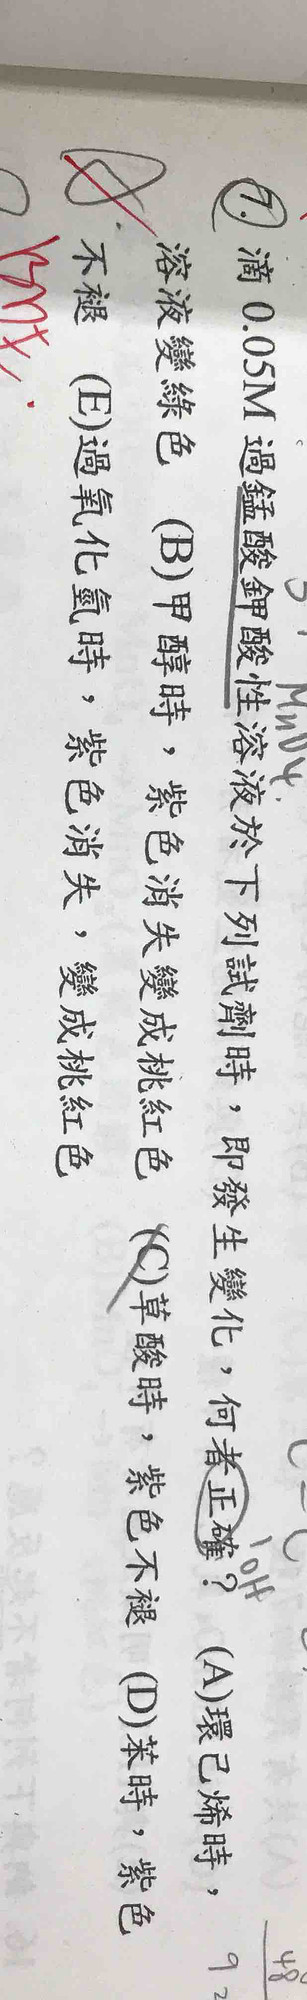 7. 滴 0.05M 過錳酸鉀酸性溶液於下列試劑時，即發生變化，何者正確？ (A)環己烯時，
溶液變綠色 (B)甲醇時，紫色消失變成桃紅色 (C)草酸時，紫色不褪 (D)苯時，紫色
不褪 (E)過氧化氫時，紫色消失，變成桃紅色
MnO4